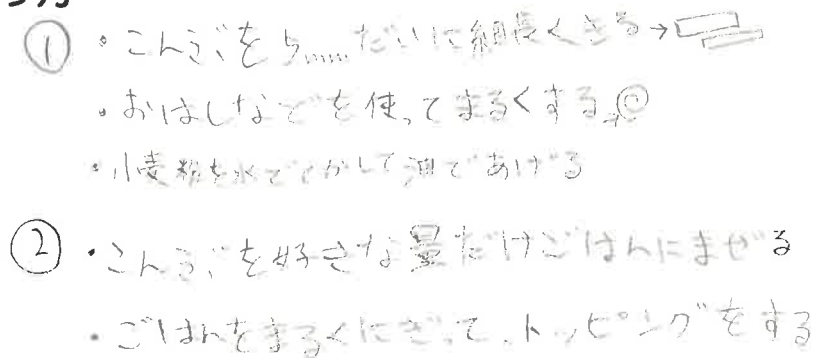 ① ・こんぶを5mmだいに細長くきる→
・おはしなどを使ってまるくする→
・小麦粉を水でとかして油であげる
② ・こんぶを好きな量だけごはんにまぜる
・ごはんをまるくにぎって、トッピングをする